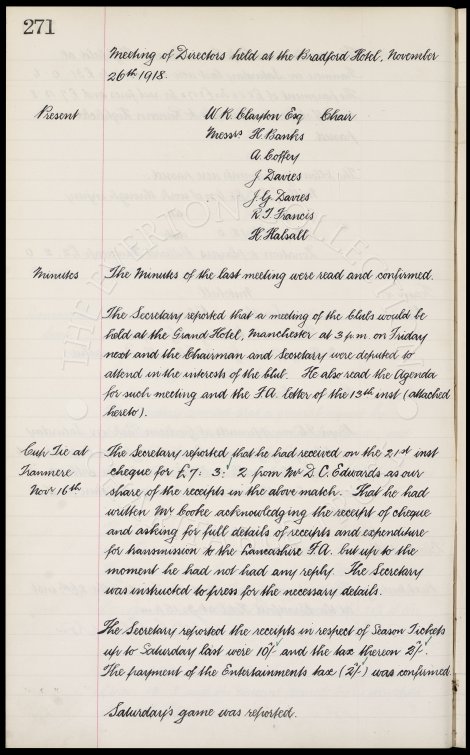 271
Meeting of Directors held at the Bradford Hotel, November
26th 1918.
Present W. R. Clayton Esq Chair
Messrs H. Banks
A. Coffey
J. Davies
J. G. Davies
R. T. Francis
H. Halsall
Minutes The Minutes of the last meeting were read and confirmed.
The Secretary reported that a meeting of the Clubs would be
held at the Grand Hotel, Manchester at 3 p.m. on Friday
next and the Chairman and Secretary were deputed to
attend in the interests of the Club. He also read the Agenda
for such meeting and the F.A. letter of the 13th inst (attached
hereto).
Cup Tie at The Secretary reported that he had received on the 21st inst
Tranmere cheque for £7: 3: 2 from Mr D. C. Edwards as our
Novr 16th share of the receipts in the above match. That he had
written Mr Cooke acknowledging the receipt of cheque
and asking for full details of receipts and expenditure
for transmission to the Lancashire F.A. but up to the
moment he had not had any reply. The Secretary
was instructed to press for the necessary details.
The Secretary reported the receipts in respect of Season Tickets
up to Saturday last were 10/- and the tax thereon 2/-.
The payment of the Entertainments tax (2/-) was confirmed.
Saturday's game was reported.
THE EVERTON COLLECTION